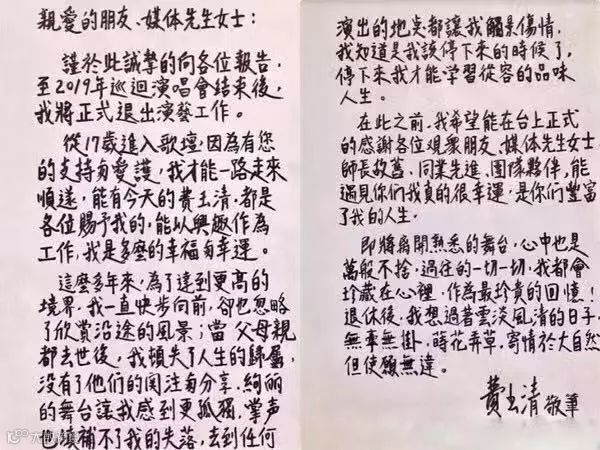 親愛的朋友、媒体先生女士：
謹於此誠摯的向各位報告，
至2019年巡迴演唱會結束後，
我將正式退出演藝工作。
從17歲進入歌壇，因為有您
的支持与愛護，我才能一路走來
順遂，能有今天的費玉清，都是
各位賜予我的，能以興趣作為
工作，我是多麼的幸福与幸運。
這麼多年來，為了達到更高的
境界，我一直快步向前，卻也忽略
了欣賞沿途的風景；當父母親
都去世後，我頓失了人生的歸屬，
沒有了他們的関注与分享，絢麗
的舞台讓我感到更孤獨，掌声
也填補不了我的失落，去到任何
演出的地点都讓我觸景傷情，
我知道是我該停下來的時候了，
停下來我才能學習從容的品味
人生。
在此之前，我希望能在台上正式
的感谢各位觀衆朋友、媒体先生女士
師長故舊、同業先進、團隊夥伴，能
遇見你们我真的很幸運，是你们豐富
了我的人生。
即將離開熟悉的舞台，心中也是
萬般不捨，過往的一切一切，我都會
珍藏在心裡，作為最珍貴的回憶！
退休後，我想過著雲淡風清的日子，
無牽無掛，蒔花弄草，寄情於大自然
但使願無違。
費玉清 敬筆